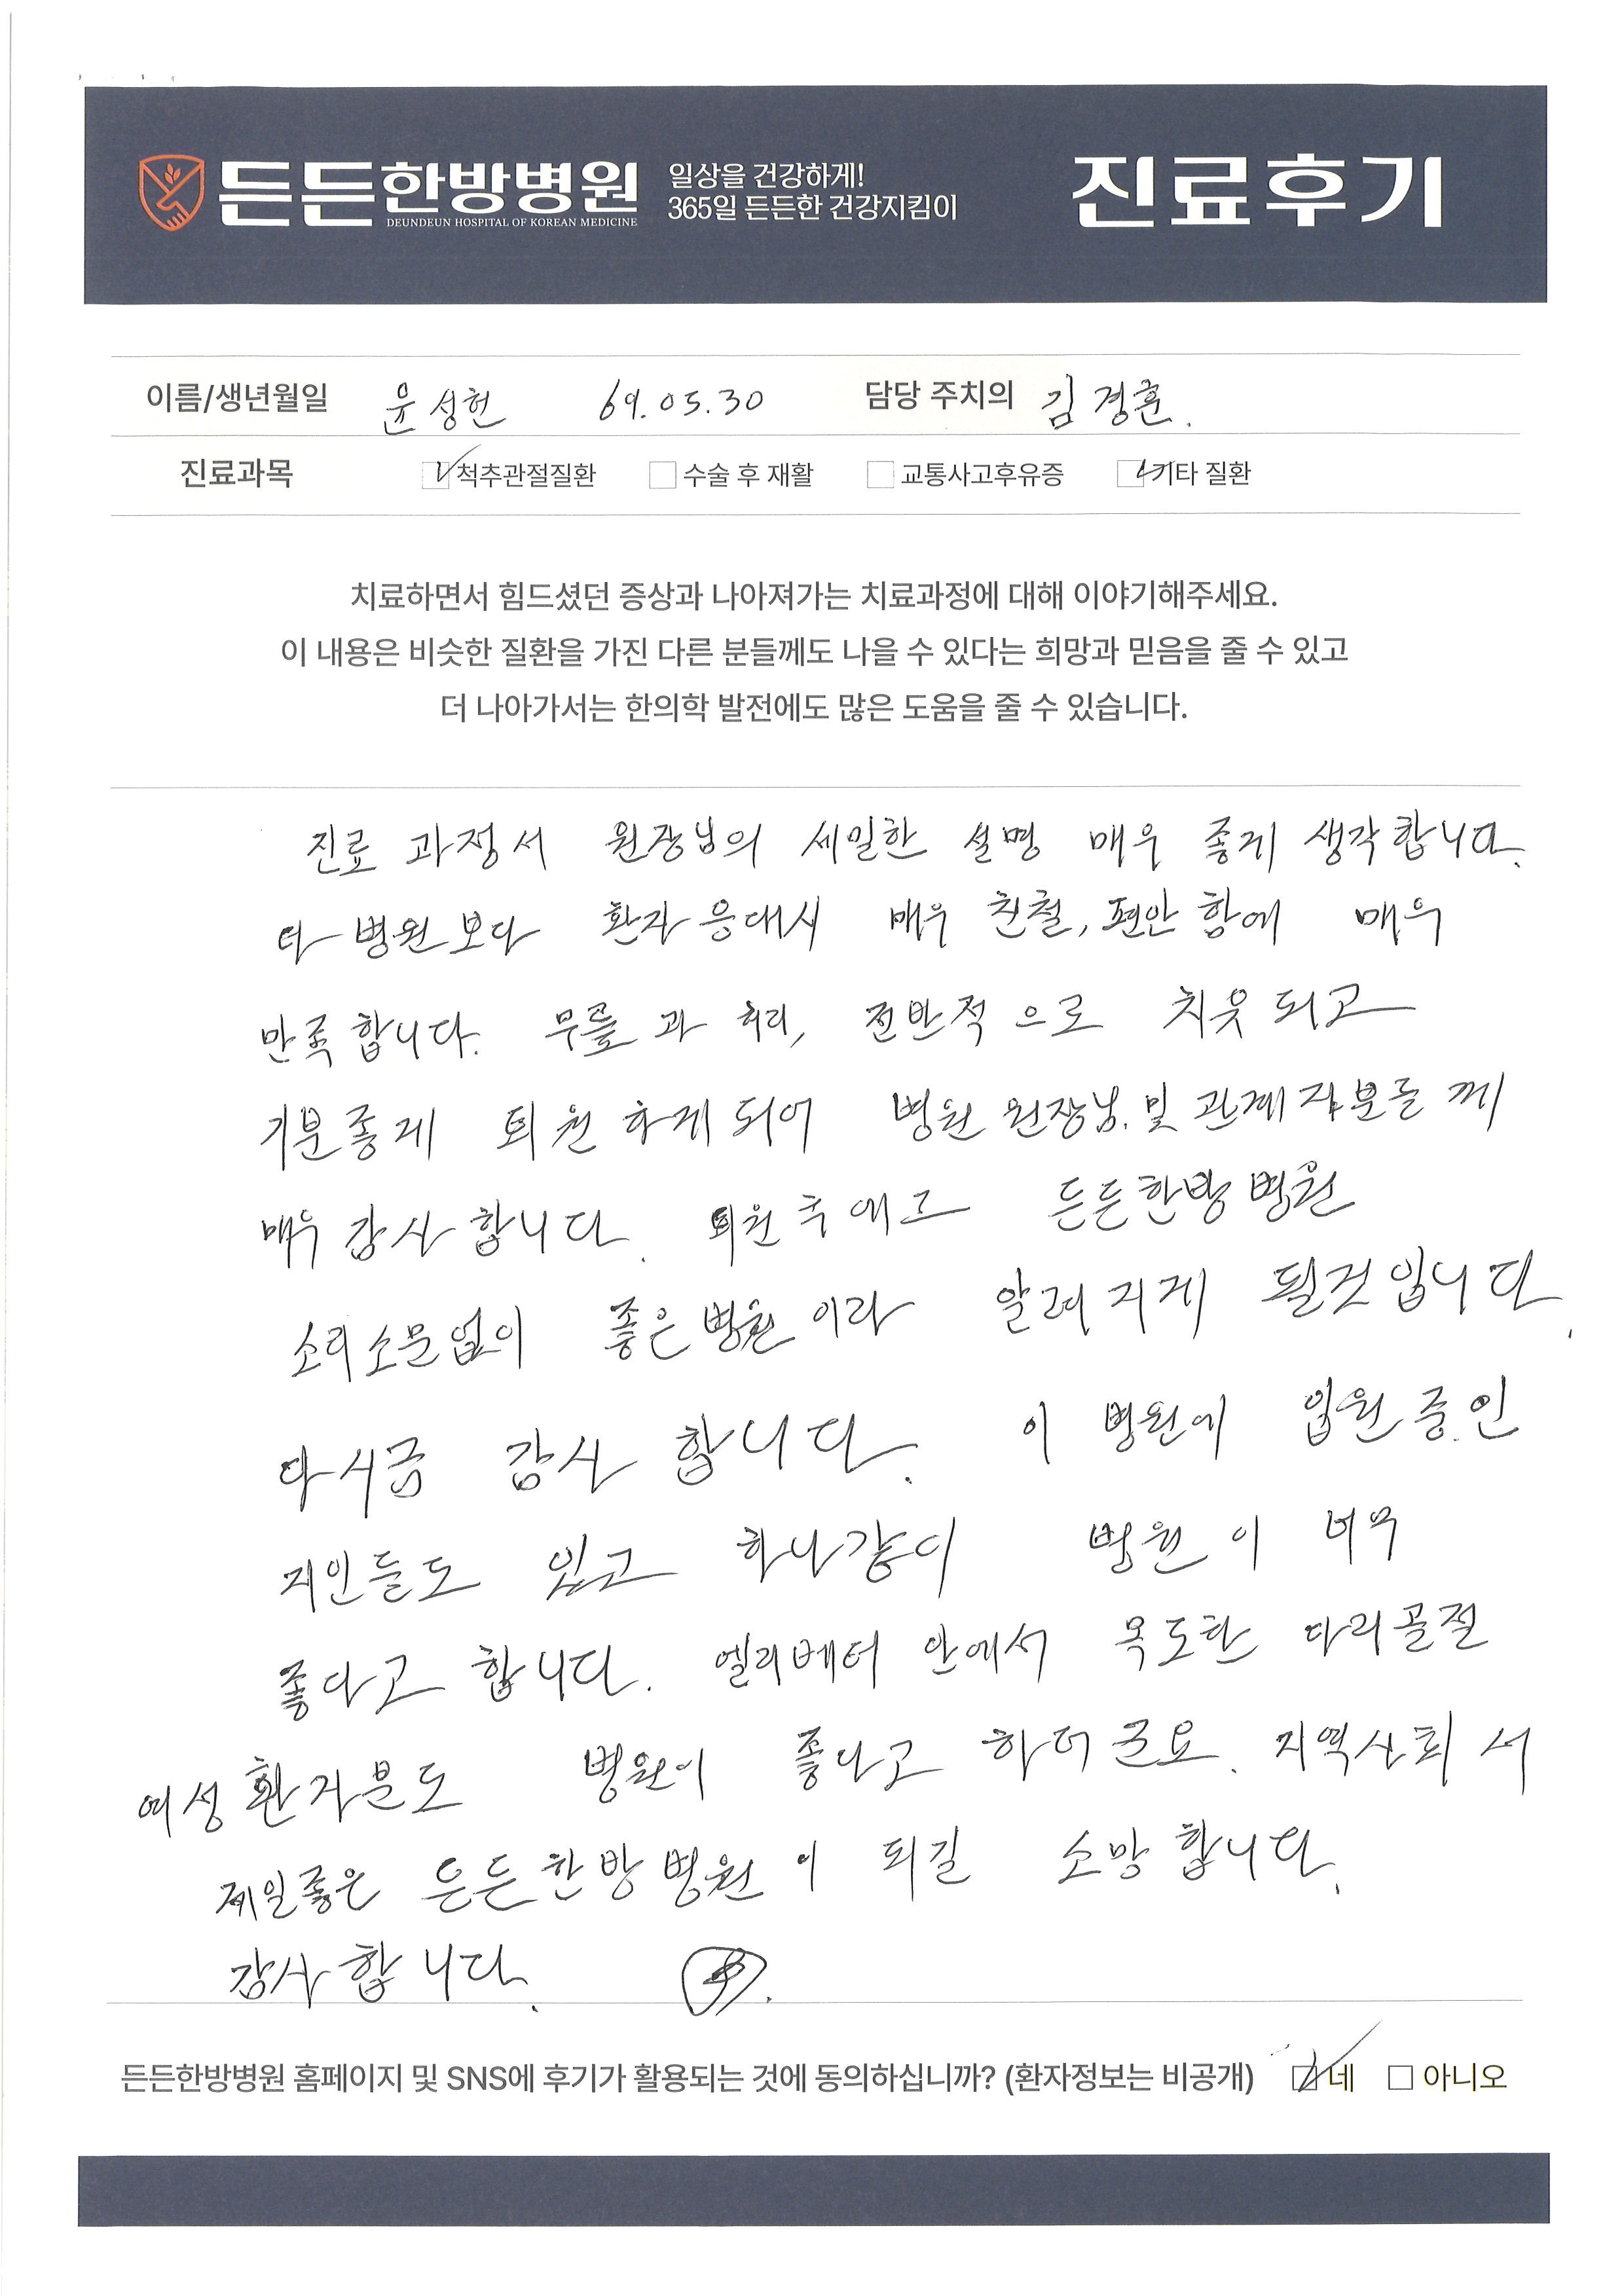 든든한방병원
DEUNDEUN HOSPITAL OF KOREAN MEDICINE
일상을 건강하게!
365일 든든한 건강지킴이
진료후기
이름/생년월일 윤성헌 69.05.30 담당 주치의 김경훈.
진료과목 척추관절질환 수술 후 재활 교통사고후유증 기타 질환
치료하면서 힘드셨던 증상과 나아져가는 치료과정에 대해 이야기해주세요.
이 내용은 비슷한 질환을 가진 다른 분들께도 나을 수 있다는 희망과 믿음을 줄 수 있고
더 나아가서는 한의학 발전에도 많은 도움을 줄 수 있습니다.
진료 과정서 원장님의 세밀한 설명 매우 좋게 생각합니다.
타 병원보다 환자 응대시 매우 친절, 편안함에 매우
만족합니다. 무릎과 허리, 전반적으로 치웃되고
기분좋게 퇴원하게되어 병원 원장님.및 관계자분들께
매우 감사합니다. 퇴원후에고 든든한방병원
소리소문없이 좋은병원이라 알려지게 될것입니다.
다시금 감사합니다. 이 병원에 입원중인
지인들도 있고 하나같이 병원이 너무
좋다고 합니다. 엘리베터 안에서 목도한 다리골절
여성환자분도 병원이 좋다고 하더군요. 지역사회서
제일좋은 든든한방병원이 되길 소망합니다.
감사합니다.
든든한방병원 홈페이지 및 SNS에 후기가 활용되는 것에 동의하십니까? (환자정보는 비공개) 네 아니오